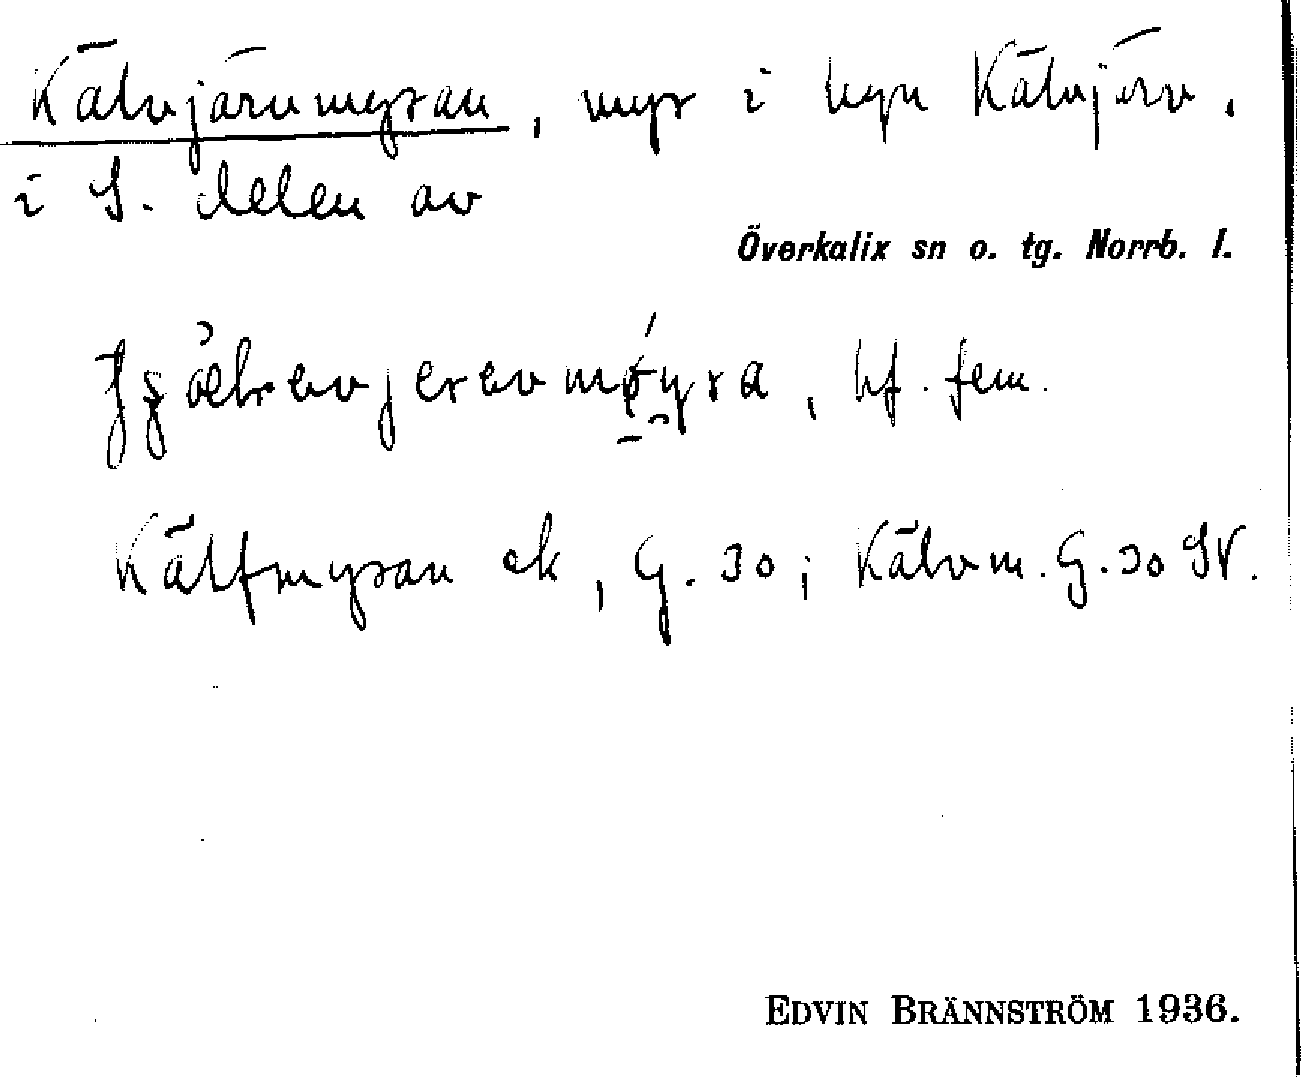 Kälvjärvmyran, myr i byn Kälvjärv,
i S. delen av
Överkalix sn o. tg. Norrb. l.
bf. fem.
Kälfmyran ek, G. 30; Kälvm. G. 30 SV.
EDVIN BRÄNNSTRÖM 1936.